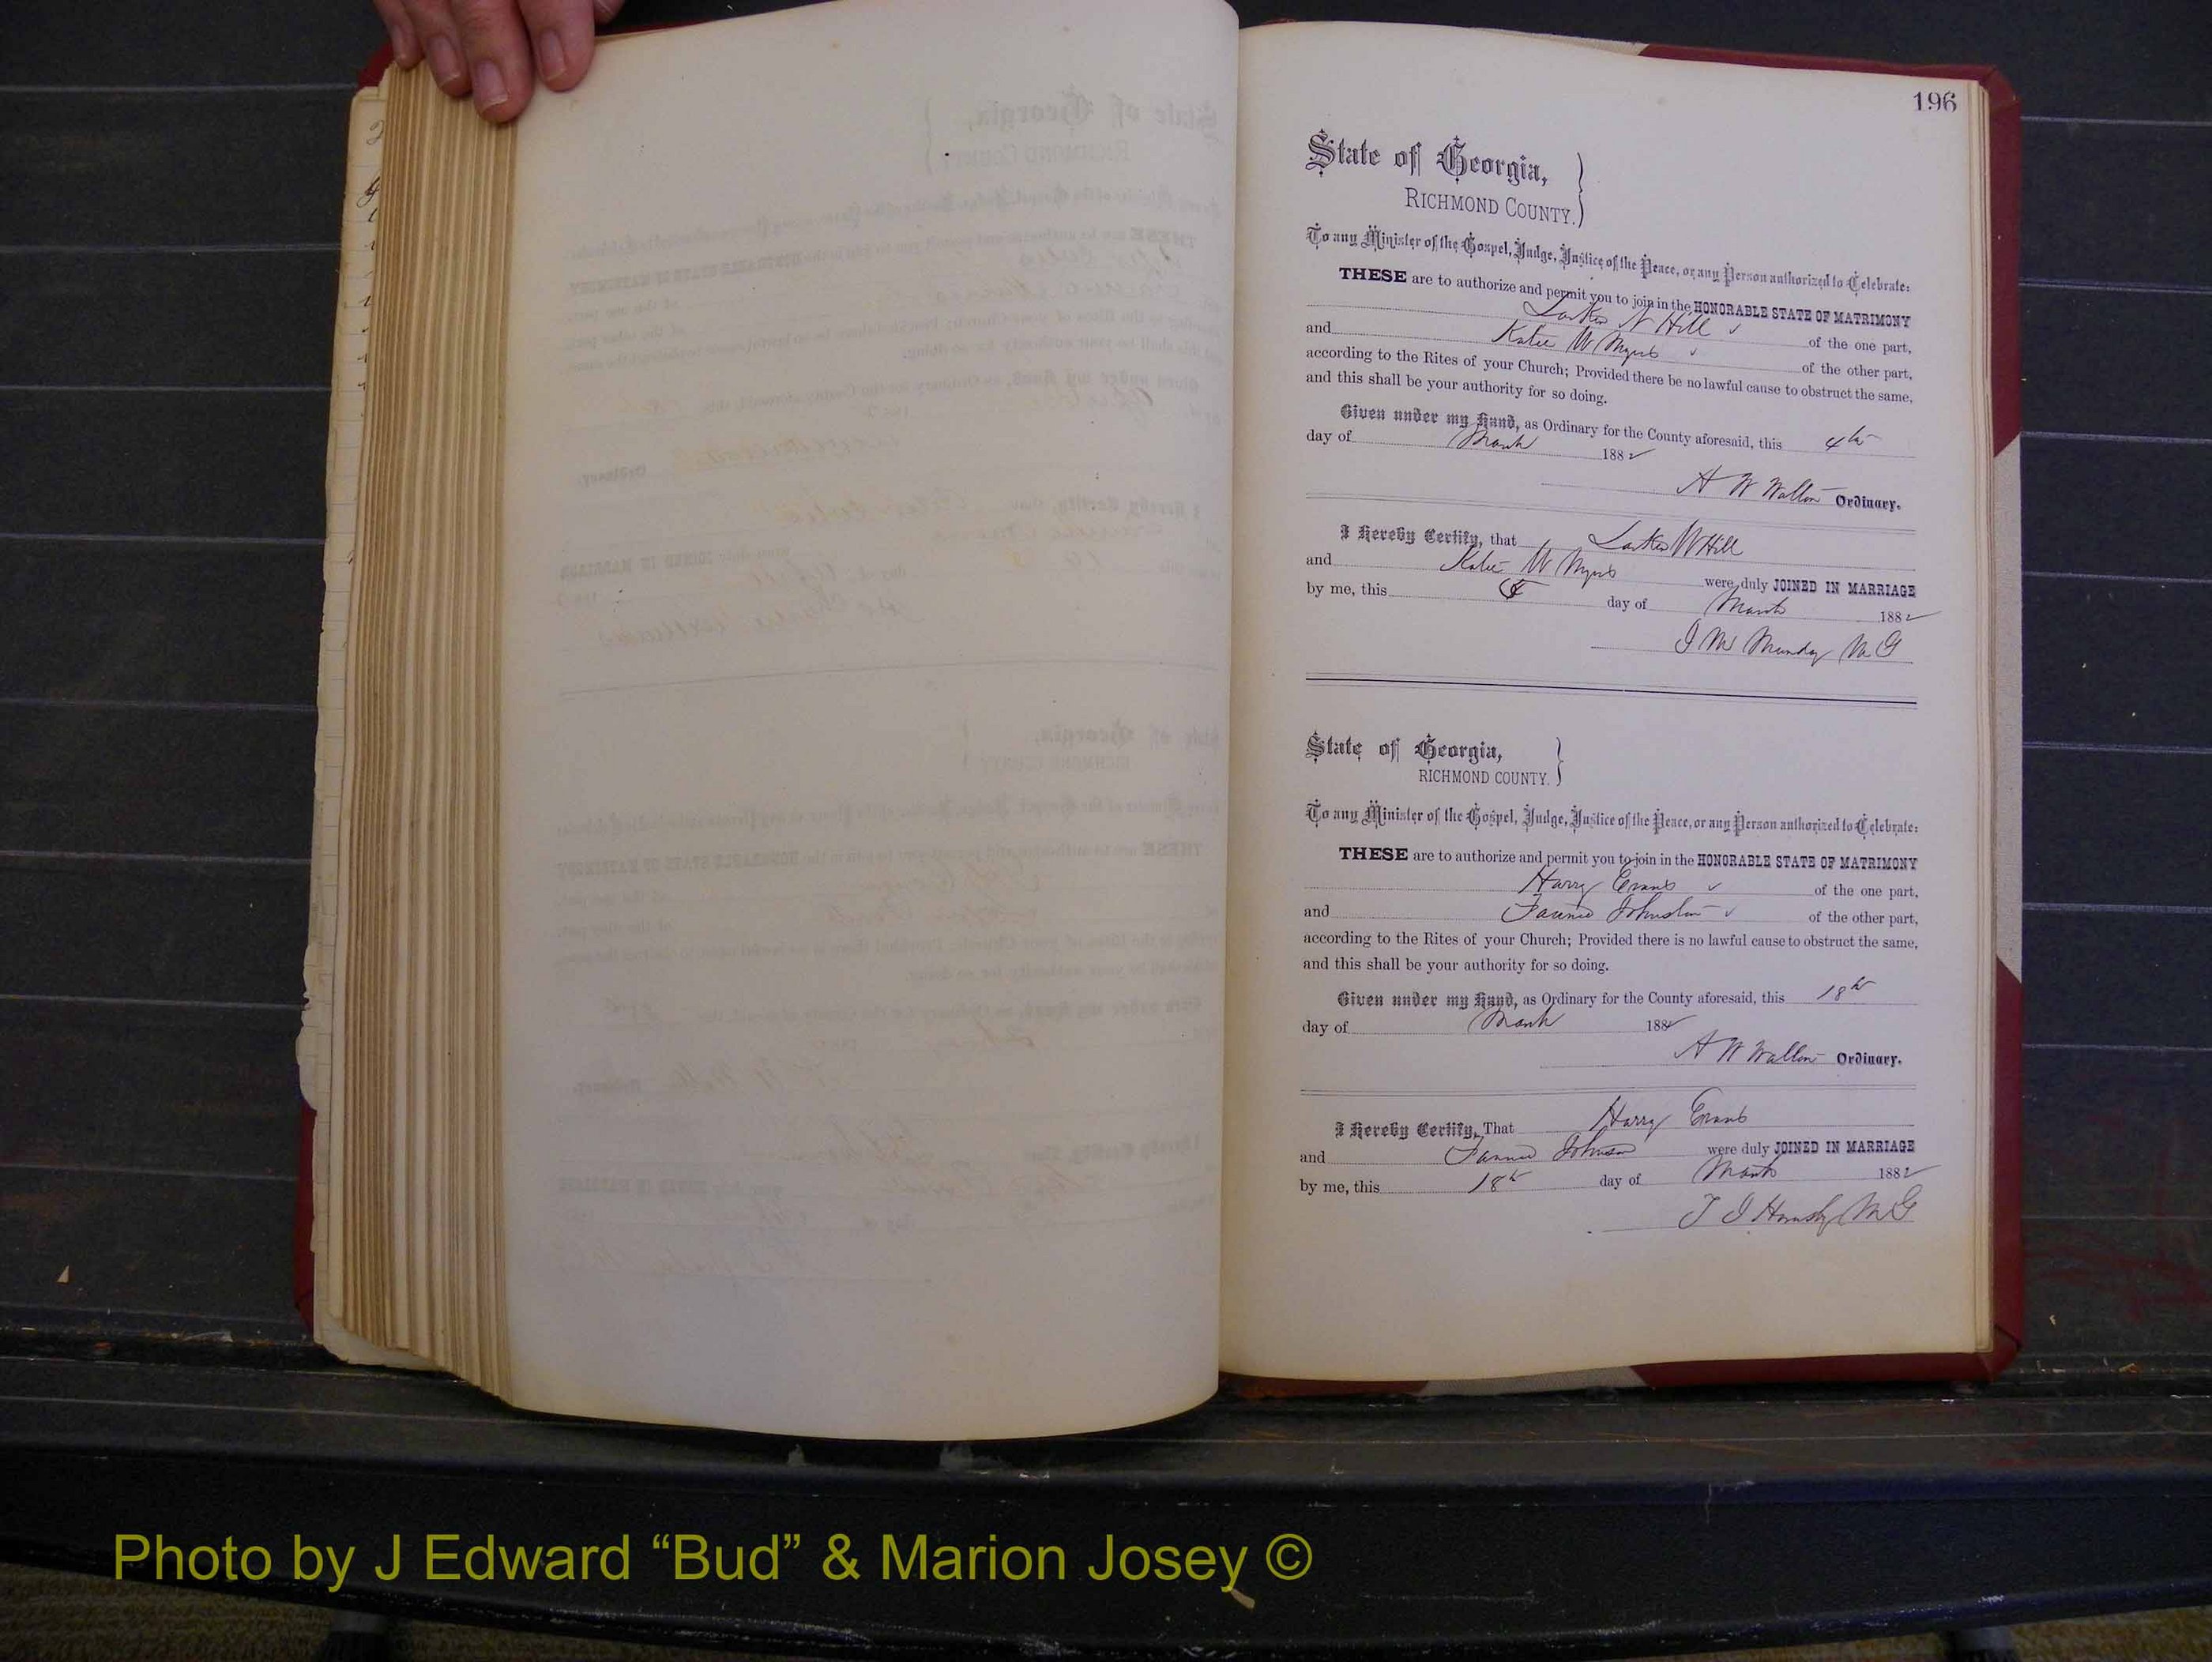 196
State of Georgia,
RICHMOND COUNTY.
To any Minister of the Gospel, Judge, Justice of the Peace, or any Person authorized to Celebrate:
THESE are to authorize and permit you to join in the HONORABLE STATE OF MATRIMONY
W Hill of the one part,
and Katie W Myers of the other part,
according to the Rites of your Church; Provided there be no lawful cause to obstruct the same,
and this shall be your authority for so doing.
Given under my Hand, as Ordinary for the County aforesaid, this 4th
day of March 1882
A W Walton Ordinary.
I Hereby Certify, that W Hill
and Katie W Myers were duly JOINED IN MARRIAGE
by me, this day of March 1882
J M Munday M G
State of Georgia,
RICHMOND COUNTY.
To any Minister of the Gospel, Judge, Justice of the Peace, or any Person authorized to Celebrate:
THESE are to authorize and permit you to join in the HONORABLE STATE OF MATRIMONY
Harry Evans of the one part,
and Fannie Johnston of the other part,
according to the Rites of your Church; Provided there is no lawful cause to obstruct the same,
and this shall be your authority for so doing.
Given under my Hand, as Ordinary for the County aforesaid, this 18th
day of March 1882
A W Walton Ordinary.
I Hereby Certify, That Harry Evans
and Fannie Johnson were duly JOINED IN MARRIAGE
by me, this 18th day of March 1882
T J Hornsby M G
Photo by J Edward “Bud” & Marion Josey ©